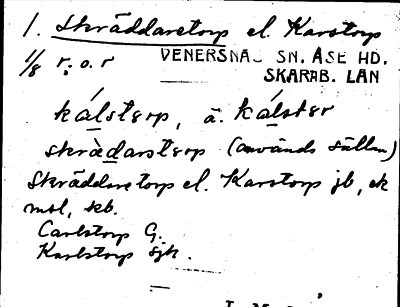 1. Skräddaretorp el. Karstorp
1/8 r.o.r VENERSNÄS SN. ÅSE HD.
SKARAB. LÄN
kálsterp, ä. kálster
skrädarsterp (används sällan)
Skräddaretorp el. Karstorp jb, ek
mtl, kb.
Carlstorp G.
Karlstorp Sjk.